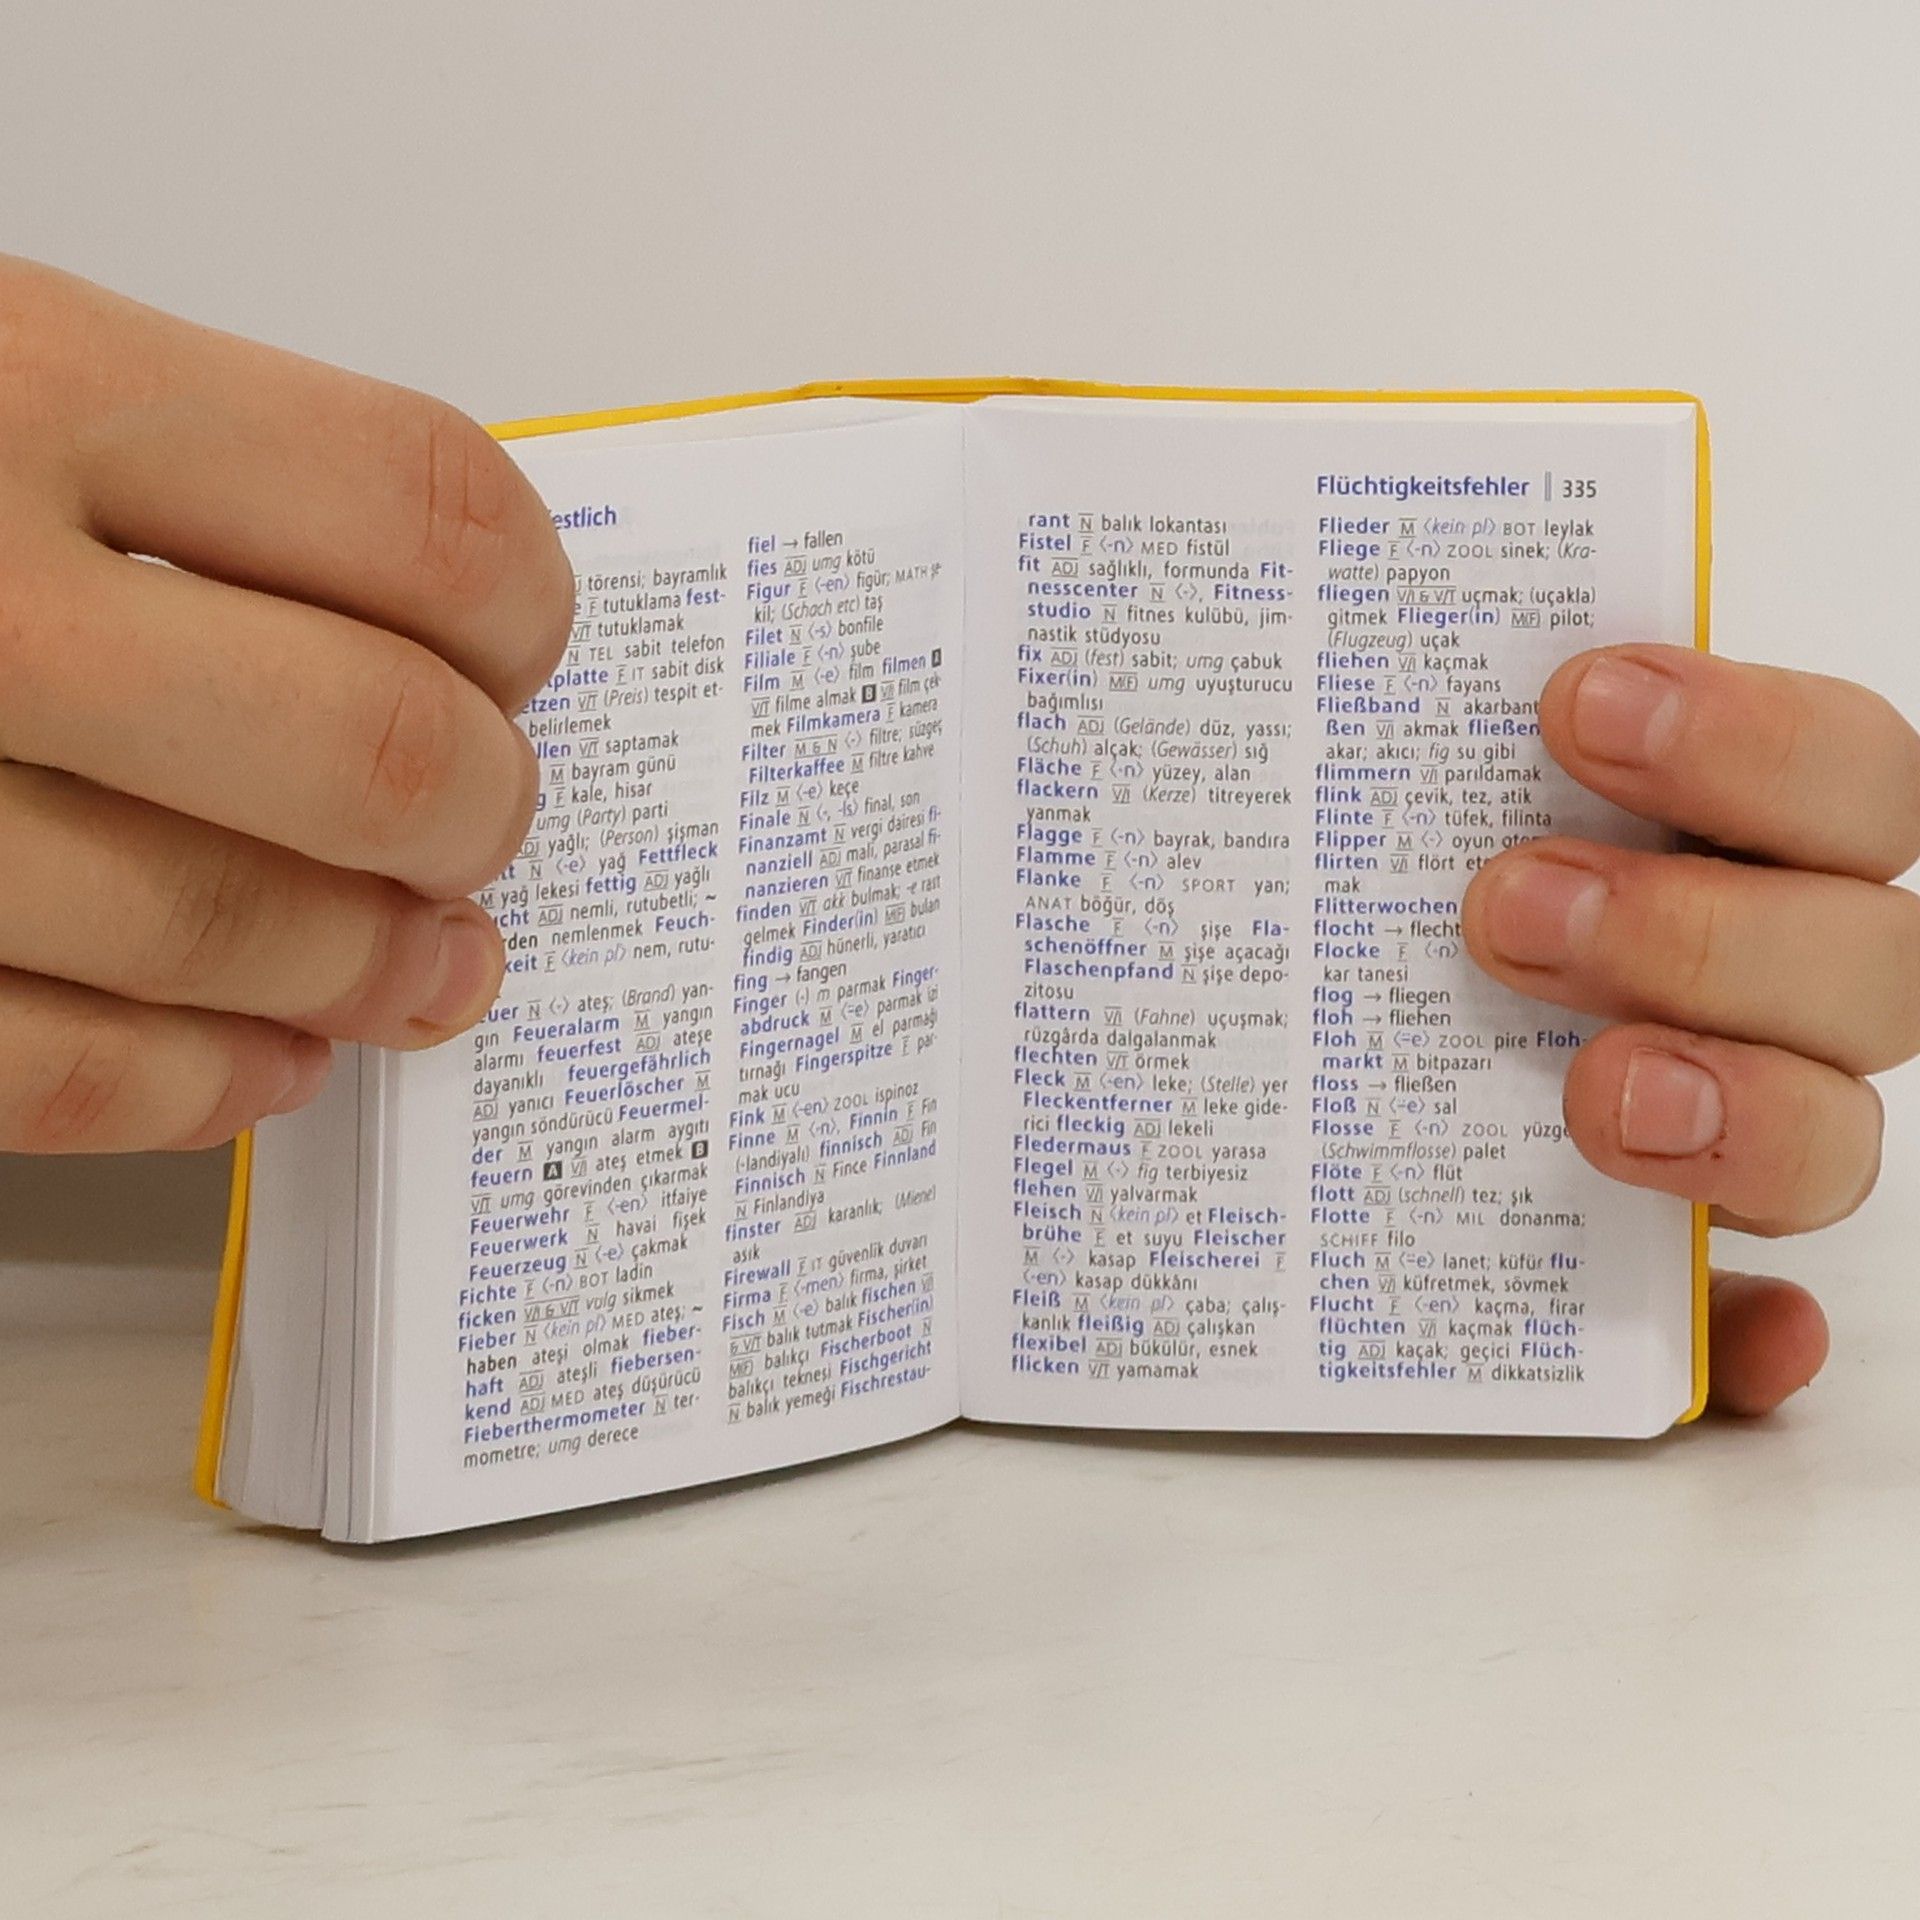 estlich
törensi; bayramlık
F tutuklama fest-
V/T tutuklamak
N TEL sabit telefon
platte F IT sabit disk
etzen V/T (Preis) tespit et-
belirlemek
llen V/T saptamak
M bayram günü
g F kale, hisar
umg (Party) parti
ADJ yağlı; (Person) şişman
tt N ⟨-e⟩ yağ Fettfleck
M yağ lekesi fettig ADJ yağlı
cht ADJ nemli, rutubetli; ~
rden nemlenmek Feuch-
keit F ⟨kein pl⟩ nem, rutu-
uer N ⟨-⟩ ateş; (Brand) yan-
gın Feueralarm M yangın
alarmı feuerfest ADJ ateşe
dayanıklı feuergefährlich
ADJ yanıcı Feuerlöscher M
yangın söndürücü Feuermel-
der M yangın alarm aygıtı
feuern A V/I ateş etmek B
V/T umg görevinden çıkarmak
Feuerwehr F ⟨-en⟩ itfaiye
Feuerwerk N havai fişek
Feuerzeug N ⟨-e⟩ çakmak
Fichte F ⟨-n⟩ BOT ladin
ficken V/I & V/T vulg sikmek
Fieber N ⟨kein pl⟩ MED ateş; ~
haben ateşi olmak fieber-
haft ADJ ateşli fiebersen-
kend ADJ MED ateş düşürücü
Fieberthermometer N ter-
mometre; umg derece
fiel → fallen
fies ADJ umg kötü
Figur F ⟨-en⟩ figür; MATH şe-
kil; (Schach etc) taş
Filet N ⟨-s⟩ bonfile
Filiale F ⟨-n⟩ şube
Film M ⟨-e⟩ film filmen A
V/T filme almak B V/I film çek-
mek Filmkamera F kamera
Filter M & N ⟨-⟩ filtre; süzgeç
Filterkaffee M filtre kahve
Filz M ⟨-e⟩ keçe
Finale N ⟨-, -(s)⟩ final, son
Finanzamt N vergi dairesi fi-
nanziell ADJ mali, parasal fi-
nanzieren V/T finanse etmek
finden V/T akk bulmak; -e rast
gelmek Finder(in) M(F) bulan
findig ADJ hünerli, yaratıcı
fing → fangen
Finger ⟨-⟩ m parmak Finger-
abdruck M ⟨=e⟩ parmak izi
Fingernagel M el parmağı
tırnağı Fingerspitze F par-
mak ucu
Fink M ⟨-en⟩ ZOOL ispinoz
Finne M ⟨-n⟩, Finnin F Fin
(-landiyalı) finnisch ADJ Fin
Finnisch N Fince Finnland
N Finlandiya
finster ADJ karanlık; (Miene)
asık
Firewall F IT güvenlik duvarı
Firma F ⟨-men⟩ firma, şirket
Fisch M ⟨-e⟩ balık fischen V/I
& V/T balık tutmak Fischer(in)
M(F) balıkçı Fischerboot N
balıkçı teknesi Fischgericht
N balık yemeği Fischrestau-
Flüchtigkeitsfehler 335
rant N balık lokantası
Fistel F ⟨-n⟩ MED fistül
fit ADJ sağlıklı, formunda Fit-
nesscenter N ⟨-⟩, Fitness-
studio N fitnes kulübü, jim-
nastik stüdyosu
fix ADJ (fest) sabit; umg çabuk
Fixer(in) M(F) umg uyuşturucu
bağımlısı
flach ADJ (Gelände) düz, yassı;
(Schuh) alçak; (Gewässer) sığ
Fläche F ⟨-n⟩ yüzey, alan
flackern V/I (Kerze) titreyerek
yanmak
Flagge F ⟨-n⟩ bayrak, bandıra
Flamme F ⟨-n⟩ alev
Flanke F ⟨-n⟩ SPORT yan;
ANAT böğür, döş
Flasche F ⟨-n⟩ şişe Fla-
schenöffner M şişe açacağı
Flaschenpfand N şişe depo-
zitosu
flattern V/I (Fahne) uçuşmak;
rüzgârda dalgalanmak
flechten V/T örmek
Fleck M ⟨-en⟩ leke; (Stelle) yer
Fleckentferner M leke gide-
rici fleckig ADJ lekeli
Fledermaus F ZOOL yarasa
Flegel M ⟨-⟩ fig terbiyesiz
flehen V/I yalvarmak
Fleisch N ⟨kein pl⟩ et Fleisch-
brühe F et suyu Fleischer
M ⟨-⟩ kasap Fleischerei F
⟨-en⟩ kasap dükkânı
Fleiß M ⟨kein pl⟩ çaba; çalış-
kanlık fleißig ADJ çalışkan
flexibel ADJ bükülür, esnek
flicken V/T yamamak
Flieder M ⟨kein pl⟩ BOT leylak
Fliege F ⟨-n⟩ ZOOL sinek; (Kra-
watte) papyon
fliegen V/I & V/T uçmak; (uçakla)
gitmek Flieger(in) M(F) pilot;
(Flugzeug) uçak
fliehen V/I kaçmak
Fliese F ⟨-n⟩ fayans
Fließband N akarbant
ßen V/I akmak fließen
akar; akıcı; fig su gibi
flimmern V/I parıldamak
flink ADJ çevik, tez, atik
Flinte F ⟨-n⟩ tüfek, filinta
Flipper M ⟨-⟩ oyun oto
flirten V/I flört et
mak
Flitterwochen
flocht → flecht
Flocke F ⟨-n⟩
kar tanesi
flog → fliegen
floh → fliehen
Floh M ⟨=e⟩ ZOOL pire Floh-
markt M bitpazarı
floss → fließen
Floß N ⟨=e⟩ sal
Flosse F ⟨-n⟩ ZOOL yüzge
(Schwimmflosse) palet
Flöte F ⟨-n⟩ flüt
flott ADJ (schnell) tez; şık
Flotte F ⟨-n⟩ MIL donanma;
SCHIFF filo
Fluch M ⟨=e⟩ lanet; küfür flu-
chen V/I küfretmek, sövmek
Flucht F ⟨-en⟩ kaçma, firar
flüchten V/I kaçmak flüch-
tig ADJ kaçak; geçici Flüch-
tigkeitsfehler M dikkatsizlik